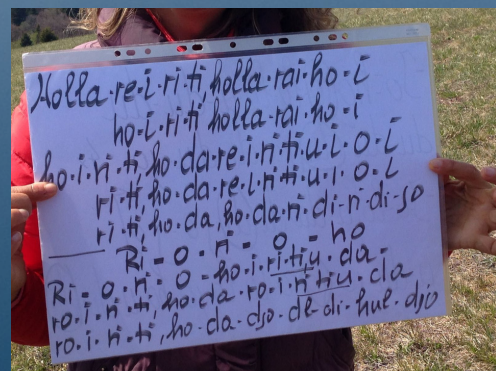 Holla-re-i-ri-ti, holla-rai-ho-i
ho-i-ri-ti holla-rai-ho-i
ho-i-ri-ti, ho-da-re-i-ri-ti-u-i-o-i
ri-ti, ho-da-re-i-ri-ti-u-i-o-i
ri-ti, ho-da, ho-da-ri-di-ri-di-jo
Ri-o-ri-o-ho
Ri-o-ri-o-ho-i-ri-ti-u-da-
ro-i-ri-ti, ho-da-ro-i-ri-ti-u-da
ro-i-ri-ti, ho-da-djo-dl-di-hul-djo